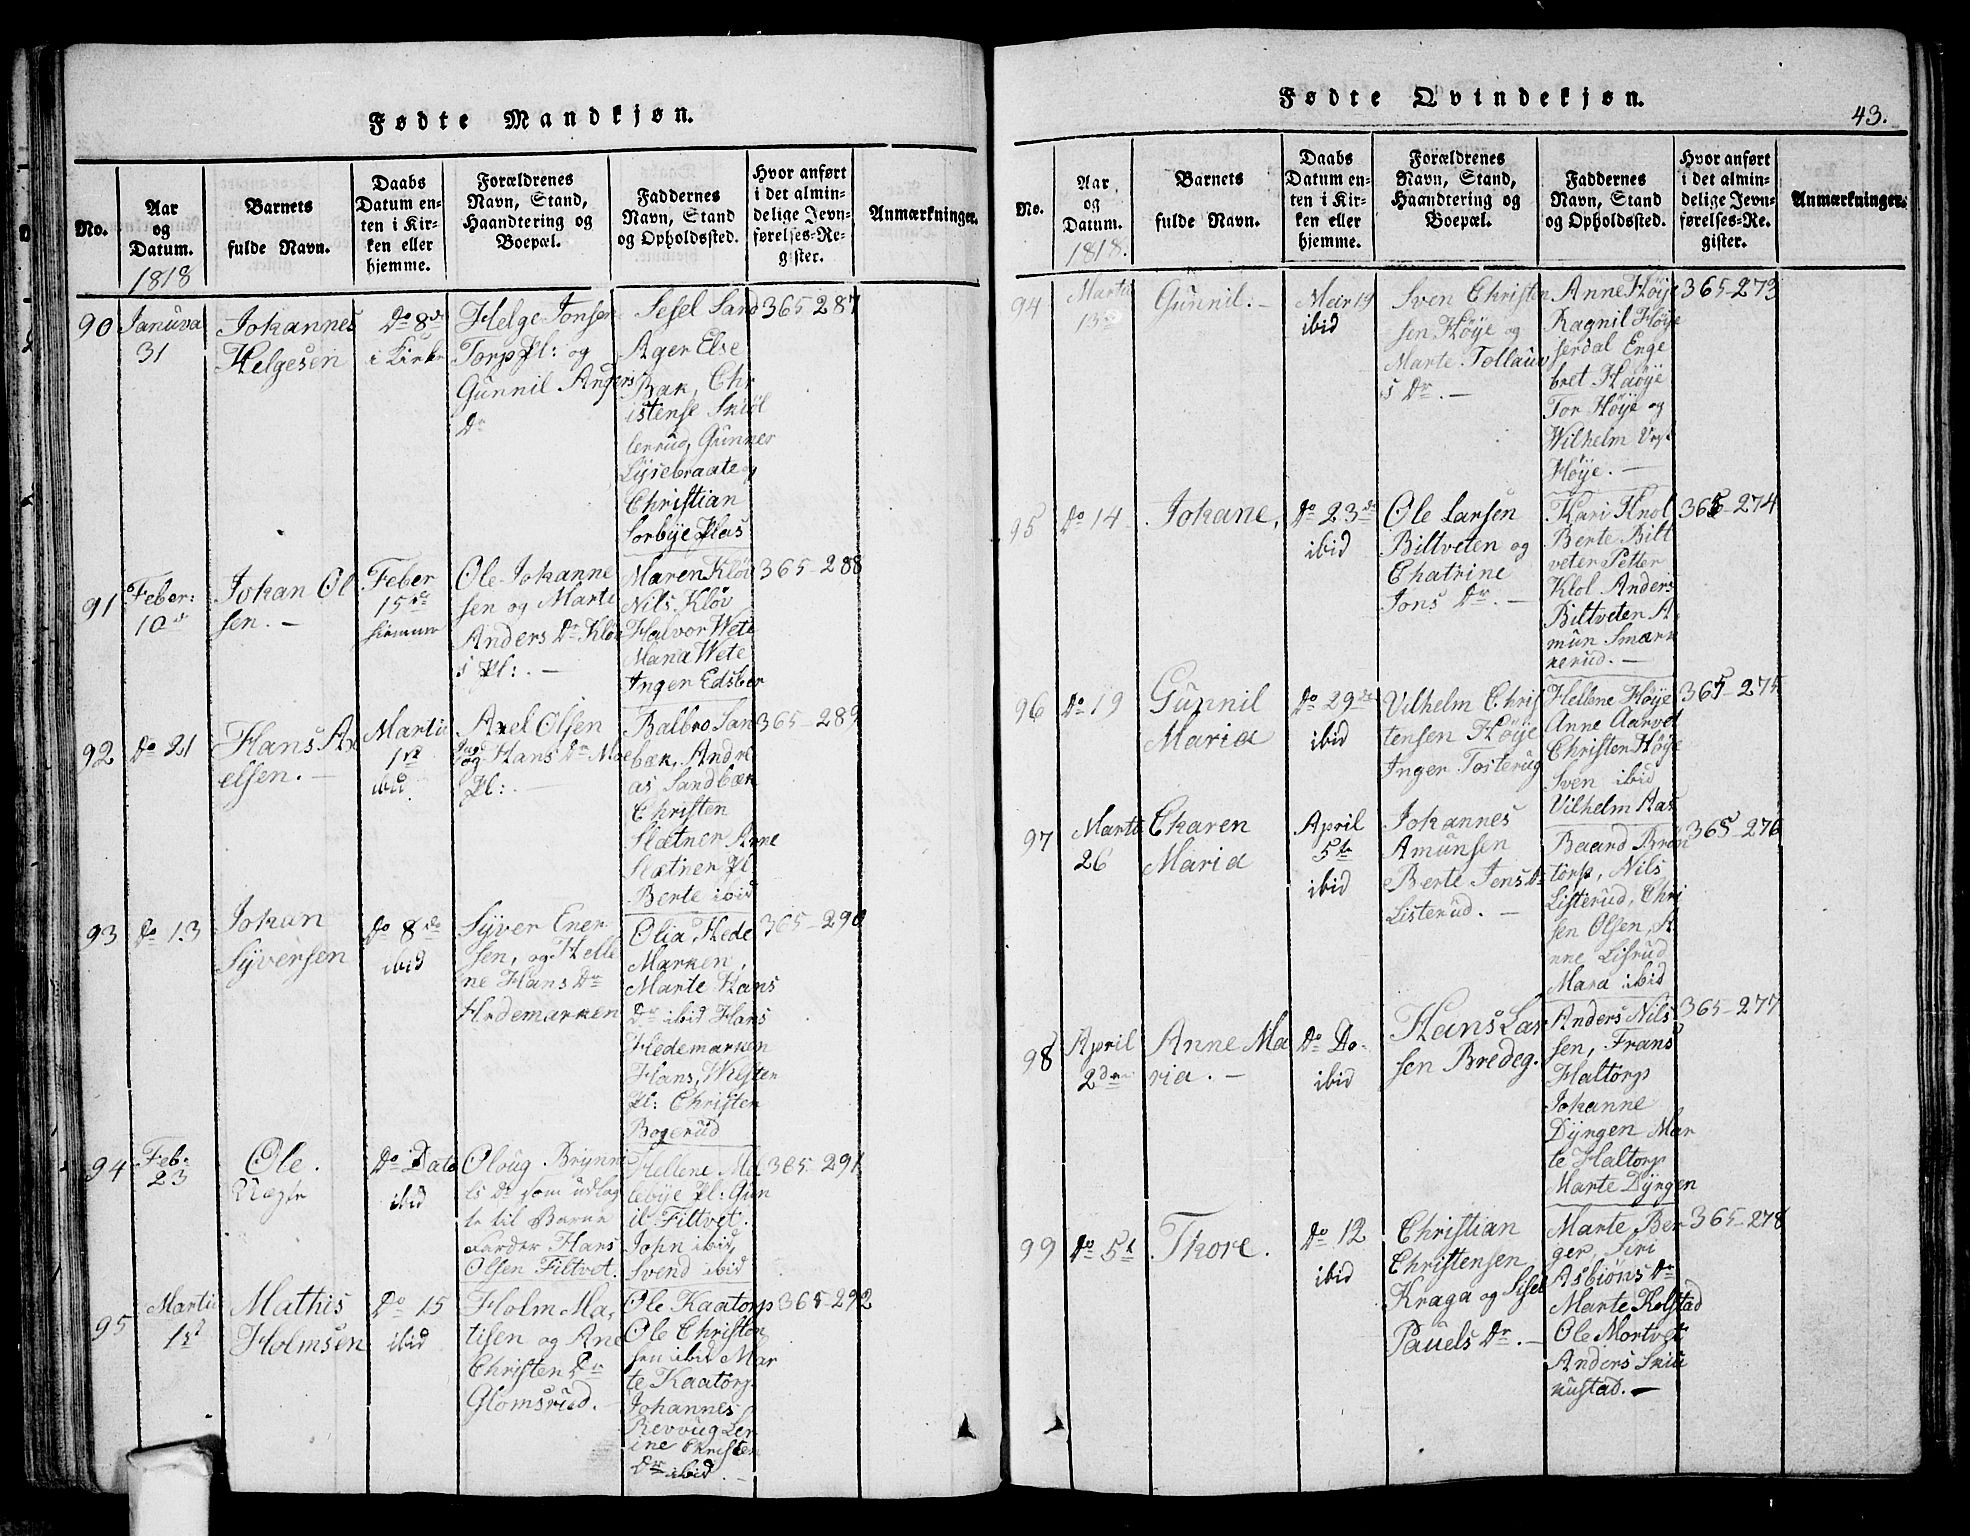 Fødte Mandkjøn.
No.
Aar
og
Datum.
1818
Barnets
fulde Navn.
Daabs
Datum en-
ten i Kir-
ken eller
hjemme.
Forældrenes
Navn, Stand,
Haandtering og
Boepæl.
Faddernes
Navn, Stand
og Opholdssted.
Hvor anført
i det almin-
delige Jevn-
førelses-Re-
gister.
Anmærkninger.
90
Januva
31
Johannes
Helgesen
Do 8de
i Kirke
Helge Jonsen
Torp Pl: og
Gunnil Anders
Dr
Sesel Sand
Ager Else
Bak, Chr
istense Skiøl
lerrud, Gunner
Lysebraate og
Christian
Sorbye Plas
365-287
91
Feber:
10de
Johan Ol
sen. -
Feber
15de
hiemme
Ole Johanne
sen og Marte
Anders Dr Kløv
s Pl: -
Maren Kløv
Nils Kløv
Halvor Wete
Maria Wete
Inger Edsber
365-288
92
Do 21
Hans Ax
elsen. -
Martii
1ste
ibid
Axel Olsen
og Hans Dr Moe
Pl: -
Balbro San
bæk, Andre
as Sandbæk
Christen
Slætner Anne
Slætner Pl
Berte ibid
365-289
93
Do 13
Johan
Syversen
Do 8de
ibid
Syver Ener
sen, og Helle
ne Hans Dr
Hedemarken
Olia Hede
Marken,
Marte Hans
Dr ibid Hans
Hedemarken
Hans, Westen
Pl: Christen
Bogerud
365-290
94
Feb.
23
Ole.
Uægte
Do Dato
ibid
Oloug Brynni
ls Dr som udlag
te til Barne
Farder Hans
Olsen Filtvet.
Hellene Mel
lebye Pl: Gun
il Filtvet.
John ibid,
Svend ibid
365-291
95
Martii
1st
Mathis
Holmsen
Do 15
ibid
Holm Ma,
tisen og Ane
Christen Dr
Glomsrud. -
Ole Kaatorp
Ole Christen
sen ibid Mar
te Kaatorp
Johannes
Revvug Ler
ine Christen
Dr ibid. -
365-292
Fødte Qvindekjøn.
43.
No.
Aar
og
Datum.
1818.
Barnets
fulde Navn.
Daabs
Datum en-
ten i Kir-
ken eller
hjemme.
Forældrenes
Navn, Stand,
Haandtering og
Boepæl.
Faddernes
Navn, Stand
og Opholdssted.
Hvor anført
i det almin-
delige Jevn-
førelses-Re-
gister.
Anmærkninger.
94
Martii
13de
Gunnil. -
ibid
Sven Christen
sen Høye og
Marte Tollauv
s Dr. -
Anne Høye
Ragnil Høye
serdal Enge
bret Høye
Tor Høye og
Wilhelm
Høye. -
365-273
95
Do 14
Johane,
Do 23de
ibid
Ole Larsen
Biltveten og
Chatrine
Jons Dr. -
Kari Knol
Berte Bilt
veter Petter
Klol Anders
Biltveten A
mun Smærk
kerud. -
365-274
96
Do 19
Gunnil
Maria
Do 29de
ibid
Vilhelm Chris
tensen Høye
Inger Tosterug
Hellene Høye
Anne Aarvet
Christen Høye
Sven ibid
Vilhelm Aas
365-275
97
Martii
26
Charen
Maria
April
5te
ibid
Johannes
Amunsen
Berte Jens Dr
Listerud. -
Baard Brøn
torp, Nils
Listerud, Chri
sen Olsen, A
nne Lisrud
Mara ibid
365-276
98
April
2den
Anne Ma
ria. -
Do Do.
ibid
Hans Lar
sen Bredeg.
Anders Nils
sen, Frans
Haltorp
Johanne
Dyrgen Mar
te Haltorp
Marte Dyrgen
365-277
99
Do 5t
Thore.
Do 12
ibid
Christian
Christensen
Kraga og Sisel
Pauels Dr. -
Marte Ber
ger, Siri
Asbiøns Dr
Marte Kolstad
Ole Mortvet
Anders Skiu
kustad. -
365-278